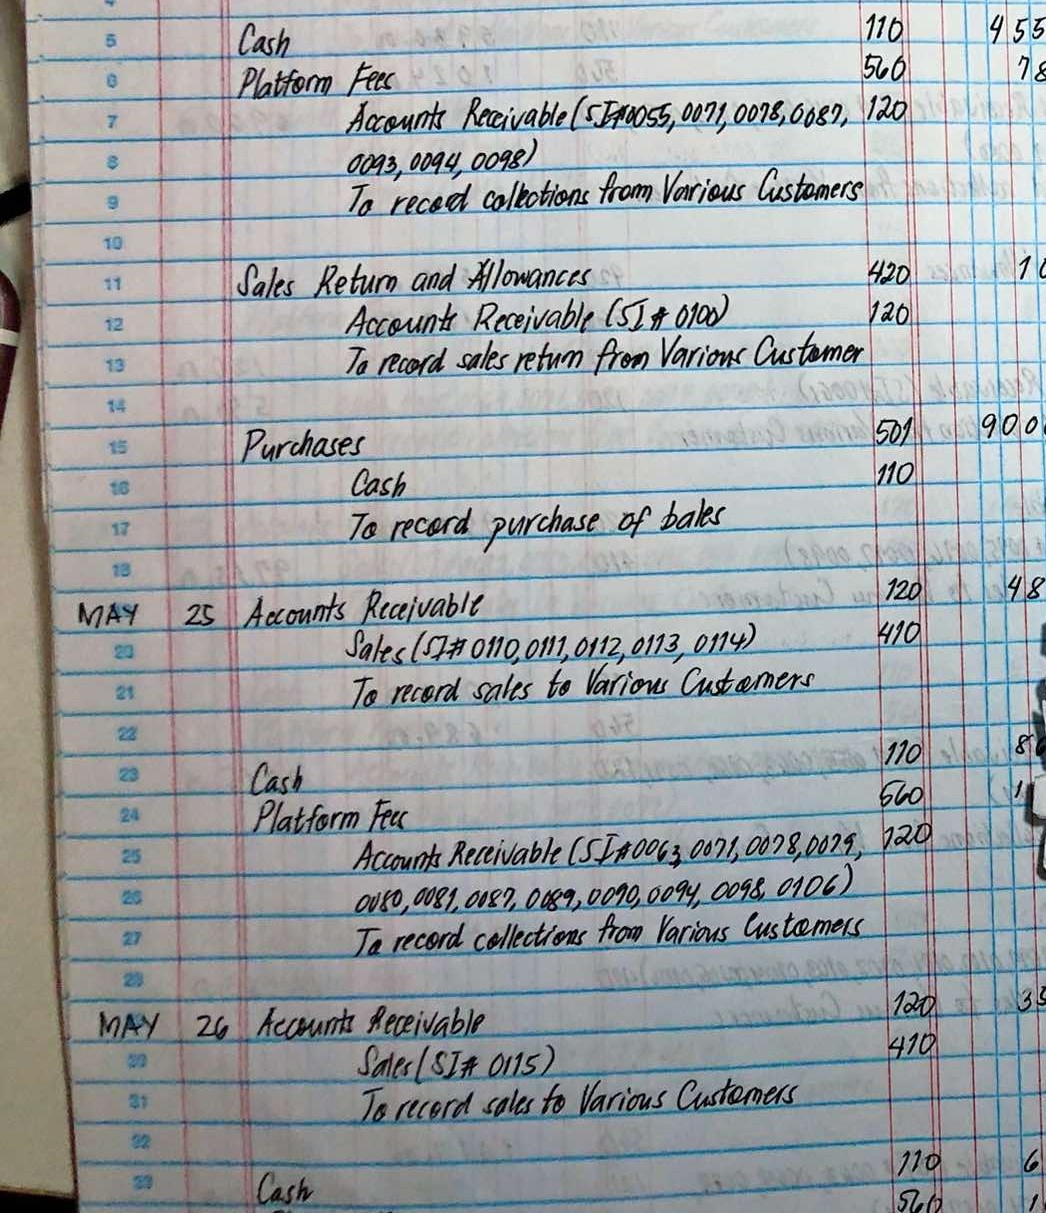 5 Cash 110 455
6 Platform Fees 560 78
7 Accounts Receivable (SI#0055, 0071, 0078, 0087, 120
8 0093, 0094, 0098)
9 To record collections from Various Customers
10
11 Sales Return and Allowances 420 10
12 Accounts Receivable (SI # 0100) 120
13 To record sales return from Various Customer
14
15 Purchases 501 900
16 Cash 110
17 To record purchase of bales
18
MAY 25 Accounts Receivable 120 48
20 Sales (SI# 0110, 0111, 0112, 0113, 0114) 410
21 To record sales to Various Customers
22
23 Cash 110 8
24 Platform Fees 560 1
25 Accounts Receivable (SI#0063, 0071, 0078, 0079, 120
26 0080, 0081, 0087, 0089, 0090, 0094, 0098, 0106)
27 To record collections from Various Customers
28
MAY 26 Accounts Receivable 120 35
30 Sales (SI# 0115) 410
31 To record sales to Various Customers
32
33 Cash 110 6
560 1